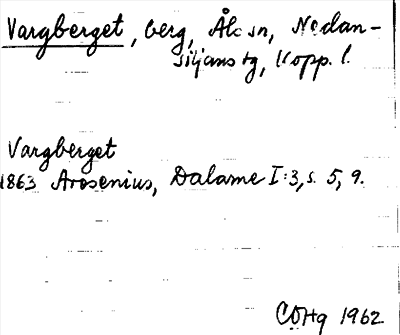 Vargberget, berg, Ål sn, Nedan-
siljans tg, Kopp. l.
Vargberget
1863 Arosenius, Dalarne I:3, s. 5, 9.
COHg 1962